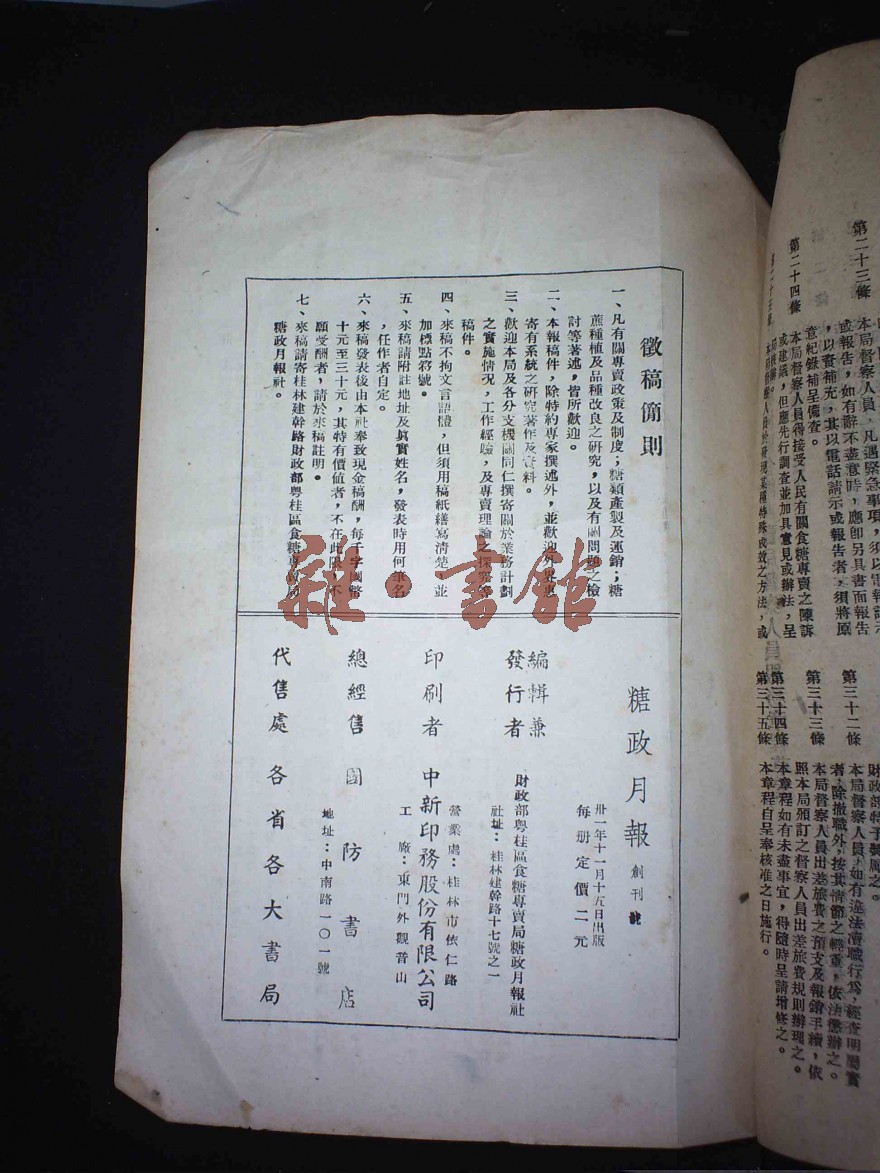 第二十三條
本局督察人員，凡遇緊急事項，須以電報請示
或報告，如有辭不盡意時，應卽另具書面報告
，以資補充，其以電話請示或報告者，須將原
意紀錄補呈備查。
第二十四條
本局督察人員得接受人民有關食糖專賣之陳訴
或建議，但應先行調查並加具意見或辦法，呈
第二十五條
財政部特予獎勵之。
第三十二條
本局督察人員，如有違法瀆職行爲，經查明屬實
者，除撤職外，按其情節之輕重，依法懲辦之。
第三十三條
本局督察人員出差旅費之預支及報銷手續，依
照本局頒訂之督察人員出差旅費規則辦理之。
第三十四條
本章程如有未盡事宜，得隨時呈請增修之。
第三十五條
本章程自呈奉核准之日施行。
徵稿簡則
一、凡有關專賣政策及制度；糖類產製及運銷；糖
蔗種植及品種改良之研究，以及有關問題之檢
討等著述，皆所歡迎。
二、本報稿件，除特約專家撰述外，並歡迎外界惠
寄有系統之研究著作及資料。
三、歡迎本局及各分支機關同仁撰寄關於業務計劃
之實施情況，工作經驗，及專賣理論之探究等
稿件。
四、來稿不拘文言語體，但須用稿紙繕寫清楚，並
加標點符號。
五、來稿請附註地址及眞實姓名，發表時用何筆名
，任作者自定。
六、來稿發表後由本社奉致現金稿酬，每千字國幣
十元至三十元，其特有價值者，不在此限，不
願受酬者，請於來稿註明。
七、來稿請寄桂林建幹路財政部粵桂區食糖專賣局
糖政月報社。
雜·書館
糖政月報 創刊號
卅一年十一月十五日出版
每册定價二元
編輯兼
發行者 財政部粵桂區食糖專賣局糖政月報社
社址：桂林建幹路十七號之一
印刷者 中新印務股份有限公司
營業處：桂林市依仁路
工廠：東門外觀音山
總經售 國防書店
地址：中南路一〇一號
代售處 各省各大書局